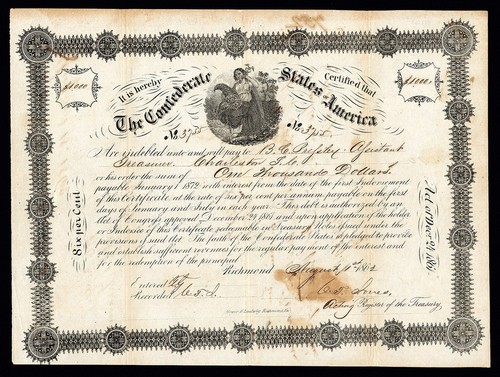 It is hereby Certified that
The Confederate States of America
$1000 $1000
No. 3725 No. 3725
Are indebted unto and will pay to B. C. Pressley Assistant
Treasurer Charleston S.C.
or his order the sum of One Thousand Dollars
payable January 1 1872 with interest from the date of the first Indorsement
of this Certificate, at the rate of six per cent per annum, payable on the first
days of January and July in each year. This debt is authorized by an
Act of Congress approved December 24 1861, and upon application of the holder
or Indorsee of this Certificate redeemable in Treasury Notes issued under the
provisions of said Act. The faith of the Confederate States is pledged to provide
and establish sufficient revenues for the regular payment of the interest and
for the redemption of the principal
Richmond August 1st 1862
Entered
Recorded C.T.J.
C. T. Jones
Acting Register of the Treasury
Six per Cent
Act of Dec. 24, 1861
Hoyer & Ludwig, Richmond, Va.